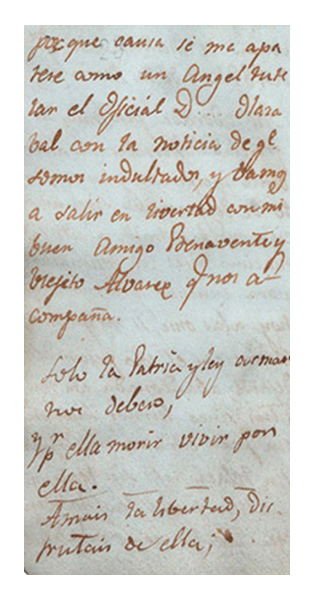 por que causa se me apa
rese como un Angel tute
lar el Oficial D... Olaza
bal con la noticia de qe.
somos indultados, y vamos
a salir en livertad con mi
buen Amigo Benavente y
Viejito Alvarez q. nos a-
compaña.
Solo la Patria y ley
nos debero,
Y pr. ella morir vivir por
ella.
Amais la libertad, dis
frutais de ella;